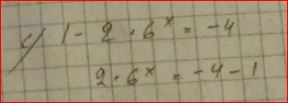 y) 1 - 2 · 6ˣ = -4
2 · 6ˣ = -4 - 1